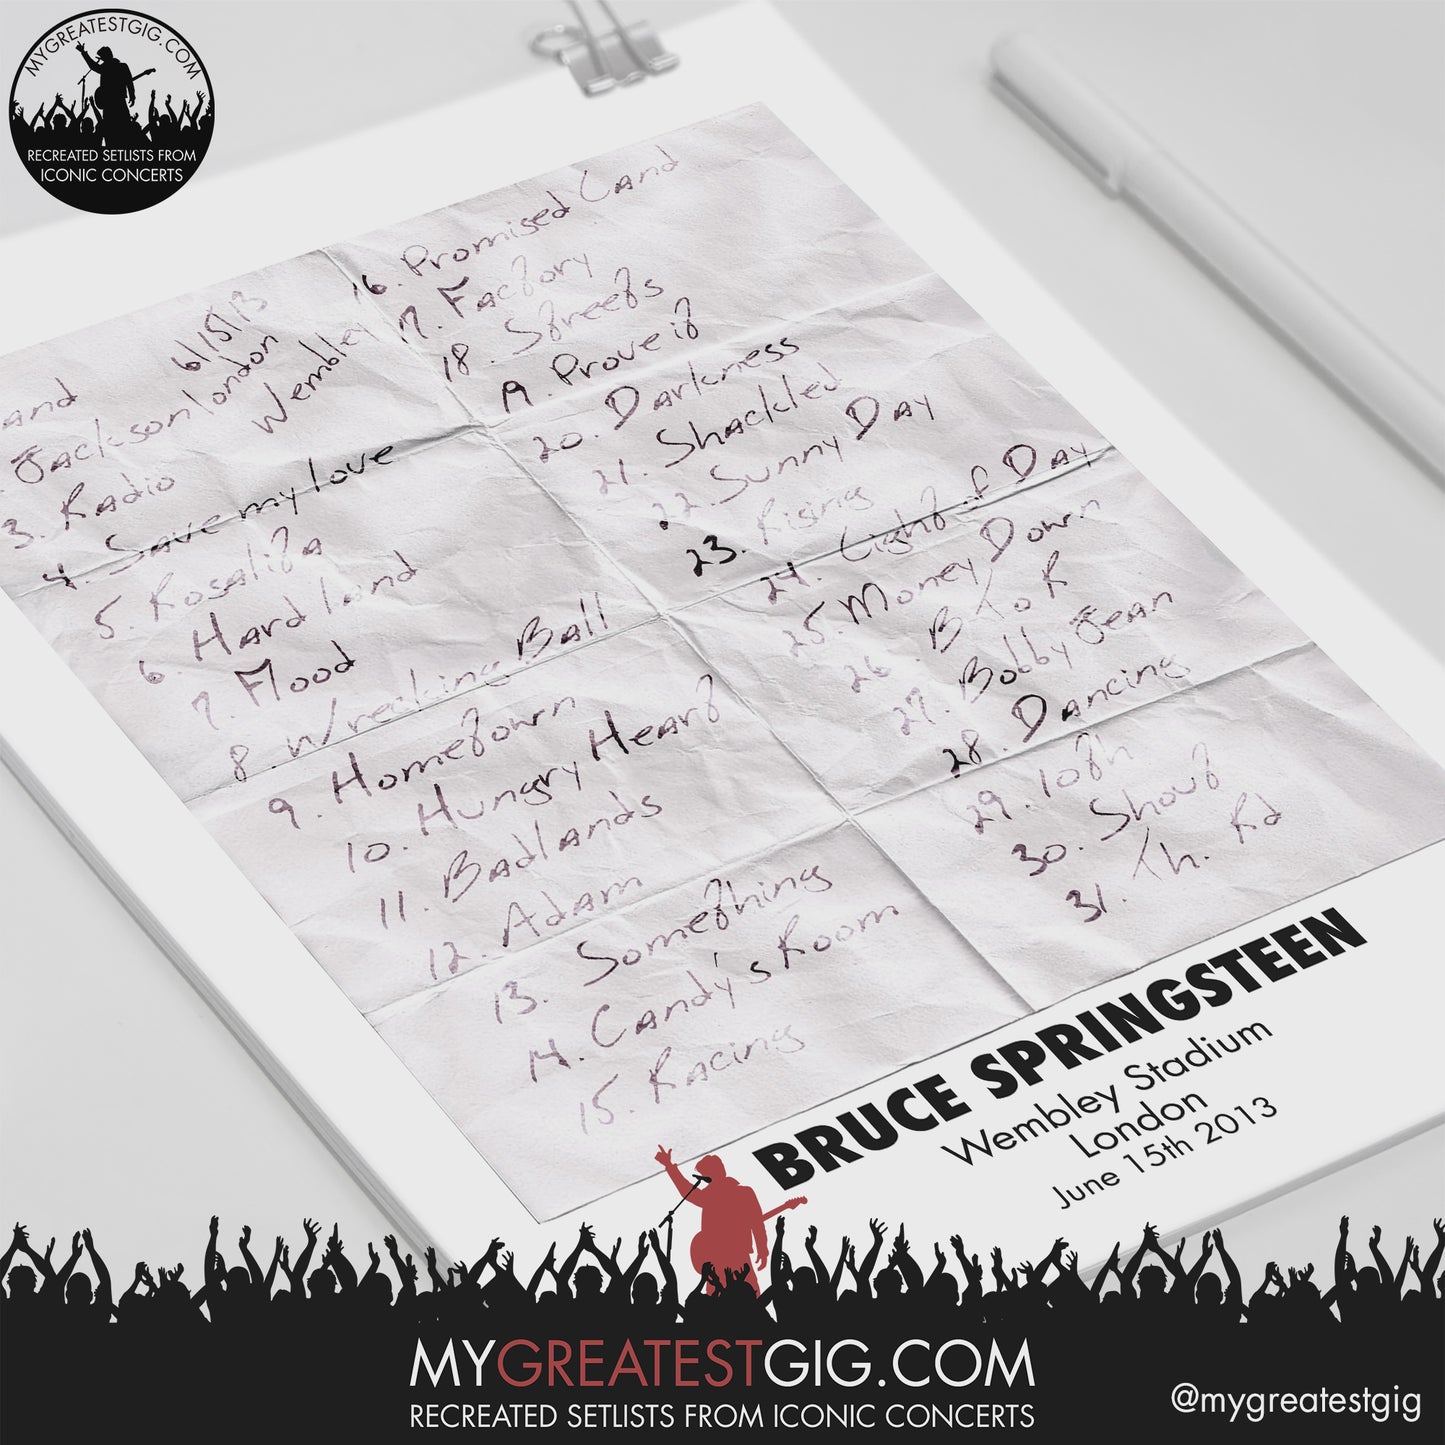 MYGREATESTGIG.COM
RECREATED SETLISTS FROM
ICONIC CONCERTS
6/15/13
London
Wembley
and
Jackson
3. Radio
4. Save my love
5. Rosalita
6. Hard land
7. Flood
8. Wrecking Ball
9. Hometown
10. Hungry Heart
11. Badlands
12. Adam
13. Something
14. Candy's Room
15. Racing
16. Promised Land
17. Factory
18. Streets
19. Prove it
20. Darkness
21. Shackled
22. Sunny Day
23. Rising
24. Light of Day
25. Money Down
26. B To R
27. Bobby Jean
28. Dancing
29. 10th
30. Shout
31. Th. Rd
BRUCE SPRINGSTEEN
Wembley Stadium
London
June 15th 2013
MYGREATESTGIG.COM
RECREATED SETLISTS FROM ICONIC CONCERTS
@mygreatestgig